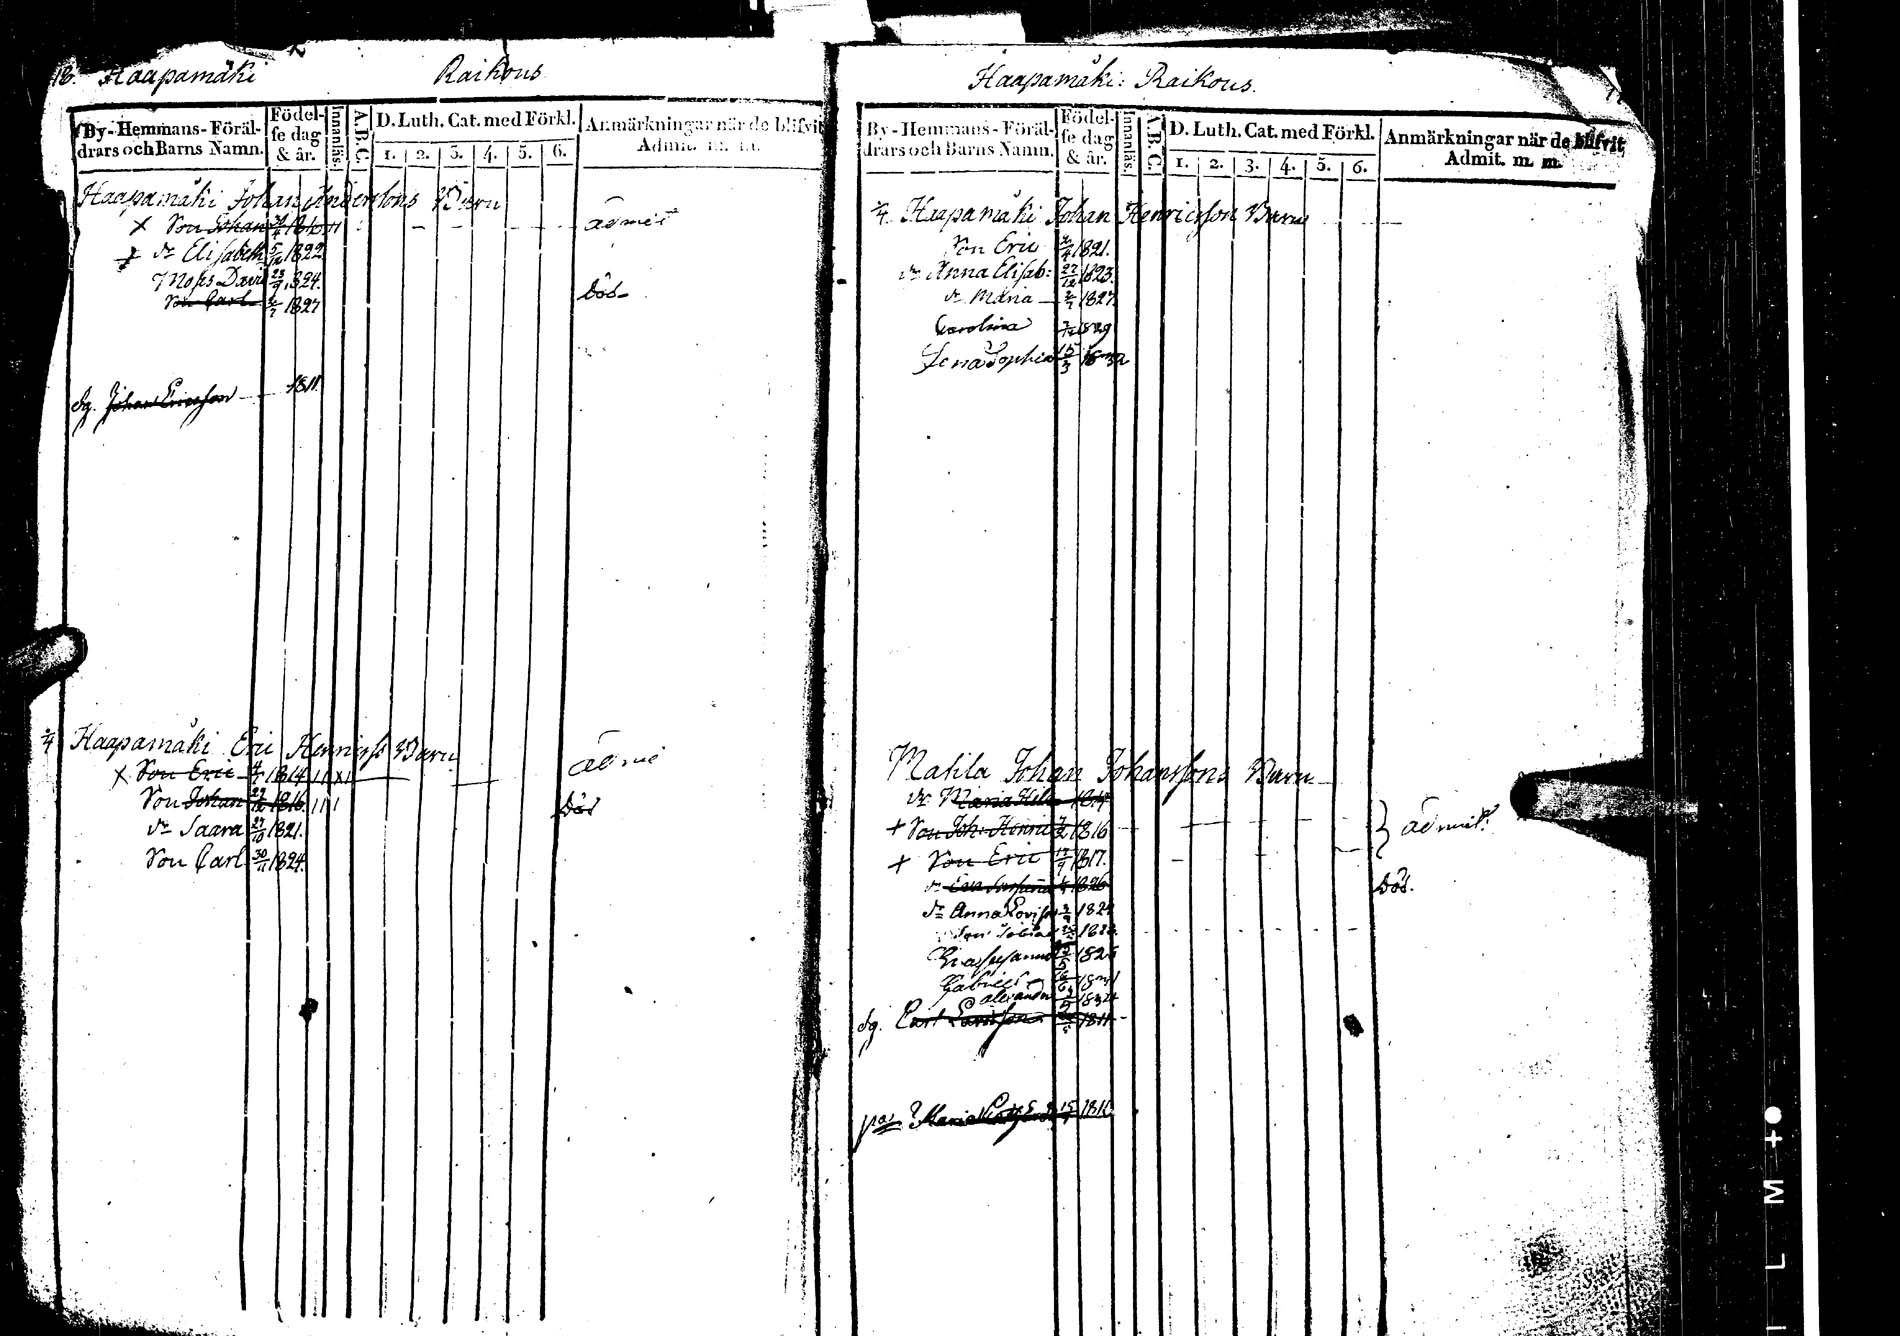 18. Haapamäki Raikous
By-Hemmans-Föräl-
drars och Barns Namn.
Födel-
se dag
& år.
Innanläs.
A.B.C.
D. Luth. Cat. med Förkl.
1. 2. 3. 4. 5. 6.
Anmärkningar när de blifvit
Admit. m. m.
Haapamäki Johan Andersons Barn
x Son Johan admit
dr Elisabeth 5/12 1822
Moses Davi 23/9 1824.
Son Carl 2/7 1827 död
dg. Johan Ericsson 1811
2/4 Haapamäki Eric Henricss Barn
x Son Eric 1814
Son Johan 1816 död
dr Saara 27/10 1821.
Son Carl 30/11 1824.
Haapamäki: Raikous.
By-Hemmans-Föräl-
drars och Barns Namn.
Födel-
se dag
& år.
Innanläs.
A.B.C.
D. Luth. Cat. med Förkl.
1. 2. 3. 4. 5. 6.
Anmärkningar när de blifvit
Admit. m. m.
2/4 Haapamäki Johan Henricsson Barn
Son Eric 1821.
dr Anna Elisab: 27/12 1823.
dr Maria 2/7 1827
Carolina 1829
Lena Sophia 15/3 1832
Matila Johan Johanssons Barn
dr Maria Hel
+ Son Joh: Henric 1816 admit:
+ Son Eric 17/9 1817.
dr Eva Susanna 1826 död.
dr Anna Lovisa
Son Tobias
Eva Susanna
Gabriel
Alexander
dg. Carl 1811
Maria